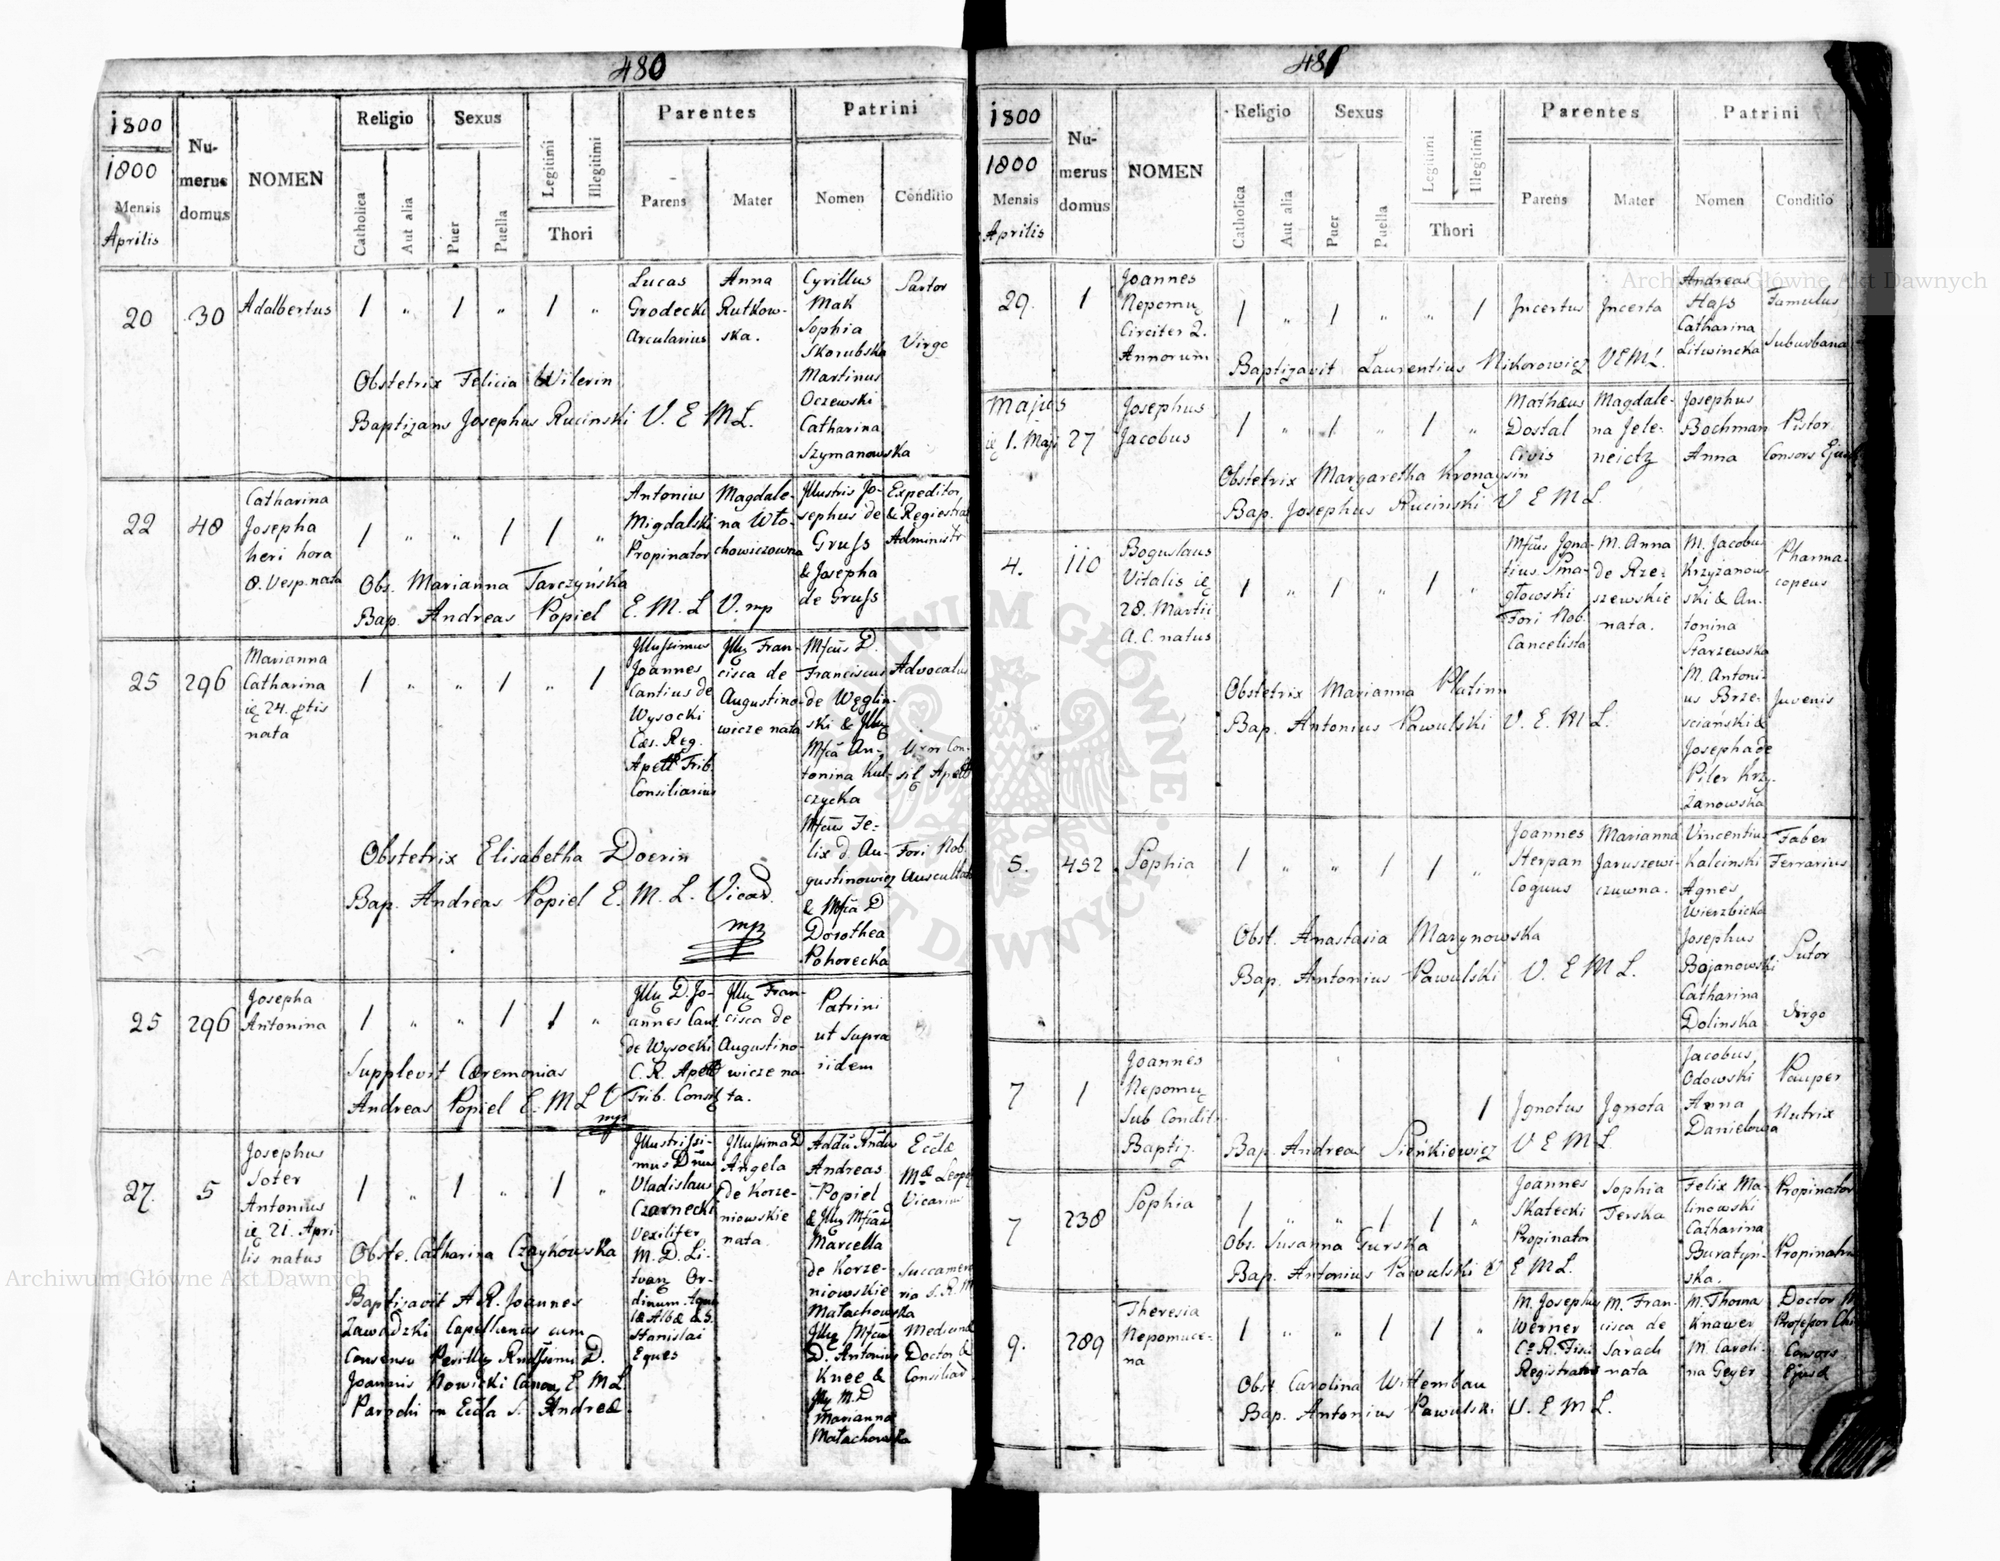 480
1800
1800
Mensis
Aprilis
Numerus domus
NOMEN
Religio
Catholica
Aut alia
Sexus
Puer
Puella
Legitimi
Illegitimi
Thori
Parentes
Parens
Mater
Patrini
Nomen
Conditio
20
30
Adalbertus
1 " 1 " 1 "
Lucas
Grodecki
Arcularius
Anna
Rutkow-
ska.
Cyrillus
Mak
Sophia
Skorubska
Martinus
Oczewski
Catharina
Szymanowska
Sartor
Virgo
Obstetrix Felicia Wilerin
Baptizans Josephus Rucinski V. E M L.
22
48
Catharina
Josepha
heri hora
8. Vesp. nata
1 " " 1 1 "
Antonius
Migdalski
Propinator
Magdale-
na Wło-
chowiczowna
Jllustris Jo-
sephus de
Gruss
& Josepha
de Gruss
Expeditor
& Regiestrat
Administr
Obs. Marianna Tarczyńska
Bap. Andreas Popiel E. M. L V. mp
25
296
Marianna
Catharina
nata
1 " " 1 " 1
Joannes
Cantius de
Wysocki
Cæs. Reg.
Apell Trib.
Consiliarius
Fran-
cisca de
Augustino-
wicze nata
Franciscus
de Węglin-
ski &
An-
tonina Kul-
czycka
Fe-
lix d. Au-
gustinowicz
&
Dorothea
Pohorecka
Advocatus
Fori Nob.
Obstetrix Elisabetha Doerin
Bap. Andreas Popiel E. M. L. Vicar.
mp
25
296
Josepha
Antonina
1 " " 1 1 "
D. Jo-
annes Cant
de Wysocki
C. R. Apell
Trib. Consil
Fran-
cisca de
Augustino-
wicze na-
ta.
Patrini
ut supra
iidem
Supplevit Cæremonias
Andreas Popiel E. M L V
mp
27.
5
Josephus
Soter
Antonius
21. Apri
lis natus
1 " 1 " 1 "
Jllustrissi-
mus
Vladislaus
Czarnecki
Vexilifer
M. D. Li-
Or-
dinum
Albæ & S.
Stanislai
Eques
Jllussima D
Angela
de Korze-
niowskie
nata.
Andreas
Popiel
&
Marcella
de Korze-
niowskie
Małachowska
D. Antonius
Knee &
Marianna
Małachowska
Vicarius
Doctor &
Obste. Catharina Czaykowska
Baptisavit A R. Joannes
Zawadzki Capellanus cum
Consensu D.
Joannis Nowicki E. M L.
Parochi S. Andreæ.
481
1800
1800
Mensis
Aprilis
Numerus domus
NOMEN
Religio
Catholica
Aut alia
Sexus
Puer
Puella
Legitimi
Illegitimi
Thori
Parentes
Parens
Mater
Patrini
Nomen
Conditio
29.
1
Joannes
Nepomu
Circiter 2.
Annorum
1 " 1 " " 1
Jncertus
Jncerta
Andreas
Hass
Catharina
Litwincka
Famulus
Suburbana
Baptizavit Laurentius Nikorowicz V E M L.
Majus
1. Maji
27
Josephus
Jacobus
1 " 1 " 1 "
Mathæus
Dostal
Civis
Magdale-
na Jele-
neictz
Josephus
Bochman
Anna
Pistor
Consors
Obstetrix Margaretha Kronaysin
Bap. Josephus Rucinski V E M L.
4.
110
Boguslaus
Vitalis
28. Martii
A. C. natus
1 " 1 " 1 "
Jgna-
tius Sma-
głowski
Fori Nob.
Cancelista
M. Anna
de Rze-
szewskie
nata.
M. Jacobus
Krzyżanow-
ski & An-
tonina
Starzewska
M. Antoni-
us Brze-
sciański &
Josepha de
Piler Krzy-
żanowska
Pharma-
copeus
Juvenis
Obstetrix Marianna Plutinn
Bap. Antonius Pawulski V. E. M L.
5.
452
Sophia
1 " " 1 1 "
Joannes
Sterpan
Coquus
Marianna
Jaruszewi-
czuwna.
Vincentius
Kalcinski
Agnes
Wierzbicka
Josephus
Bojanowski
Catharina
Dolinska
Faber
Ferrarius
Sutor
Virgo
Obst. Anastasia Marynowska
Bap. Antonius Pawulski V. E M L.
7
1
Joannes
Nepomu
Sub Condit.
Baptiz.
1
Jgnotus
Jgnota
Jacobus
Odowski
Anna
Danielowa
Pauper
Nutrix
Bap. Andreas Sieńkiewicz V E M L
7
238
Sophia
1 " " 1 1 "
Joannes
Skatecki
Propinator
Sophia
Terska
Felix Ma-
linowski
Catharina
Buratyń-
ska.
Propinator
Propinatrix
Obs. Susanna Gurska
Bap. Antonius Pawulski V E M L.
9.
289
Theresia
Nepomuce-
na
1 " " 1 1 "
M. Josephus
Werner
Registrator
M. Fran-
cisca de
Sarach
nata
M. Thoma
Knawer
M. Caroli-
na Geyer
Doctor M
Professor
Consors
Ejusd
Obst. Carolina Wittembau
Bap. Antonius Pawulski V. E M L.
Archiwum Główne Akt Dawnych
Archiwum Główne Akt Dawnych
ARCHIWUM GŁÓWNE AKT DAWNYCH